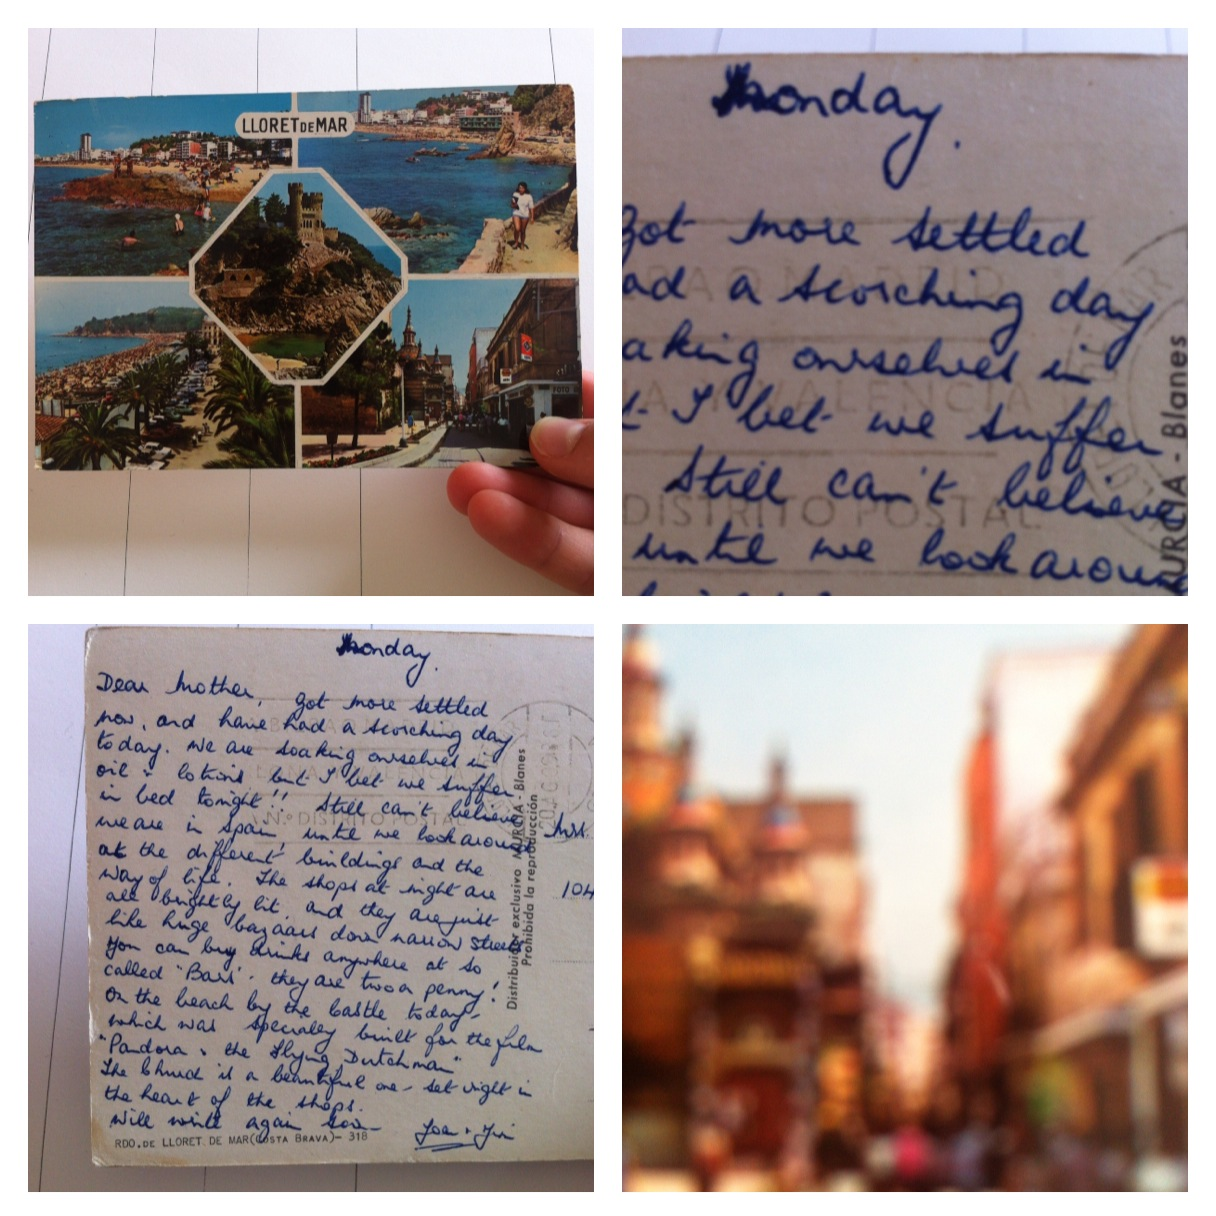 LLORET DE MAR
FOTO
Monday.
got more settled
ad a scorching day
aking ourselves in
t I bet we suffer
Still can't believe
until we look around
DISTRITO POSTAL
MURCIA - Blanes
Monday.
Dear Mother, got more settled
now, and have had a scorching day
today. We are soaking ourselves in
oil + lotions but I bet we suffer
in bed tonight!! Still can't believe
we are in Spain, until we look around
at the different buildings and the
way of life. The shops at night are
all brightly lit, and they are just
like huge bazaars down narrow streets
You can buy drinks anywhere at so
called "Bars". they are two a penny!
On the beach by the Castle today-
which was specialy built for the film
"Pandora + the Flying Dutchman"
The Church is a beautiful one - set right in
the heart of the shops.
Will write again soon
Joan + Jim
RDO. DE LLORET DE MAR (COSTA BRAVA) - 318
Nº DISTRITO POSTAL
Distribuidor exclusivo MURCIA - Blanes
Prohibida la reproducción
104